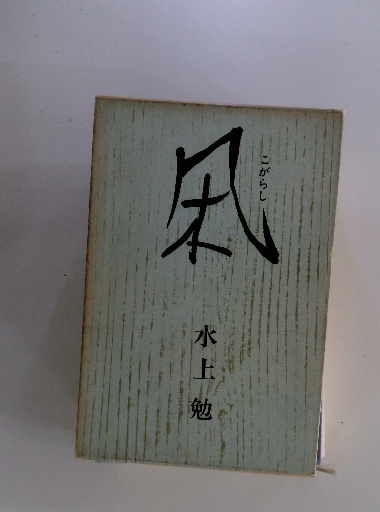 凩
こがらし
水上勉